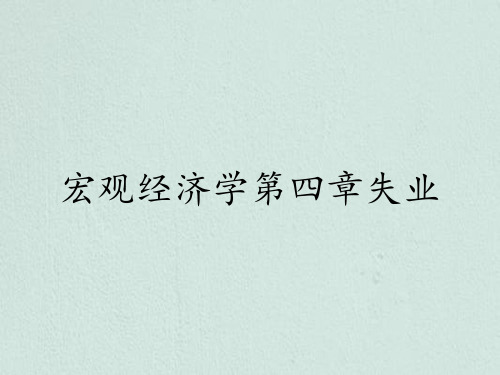 宏观经济学第四章失业